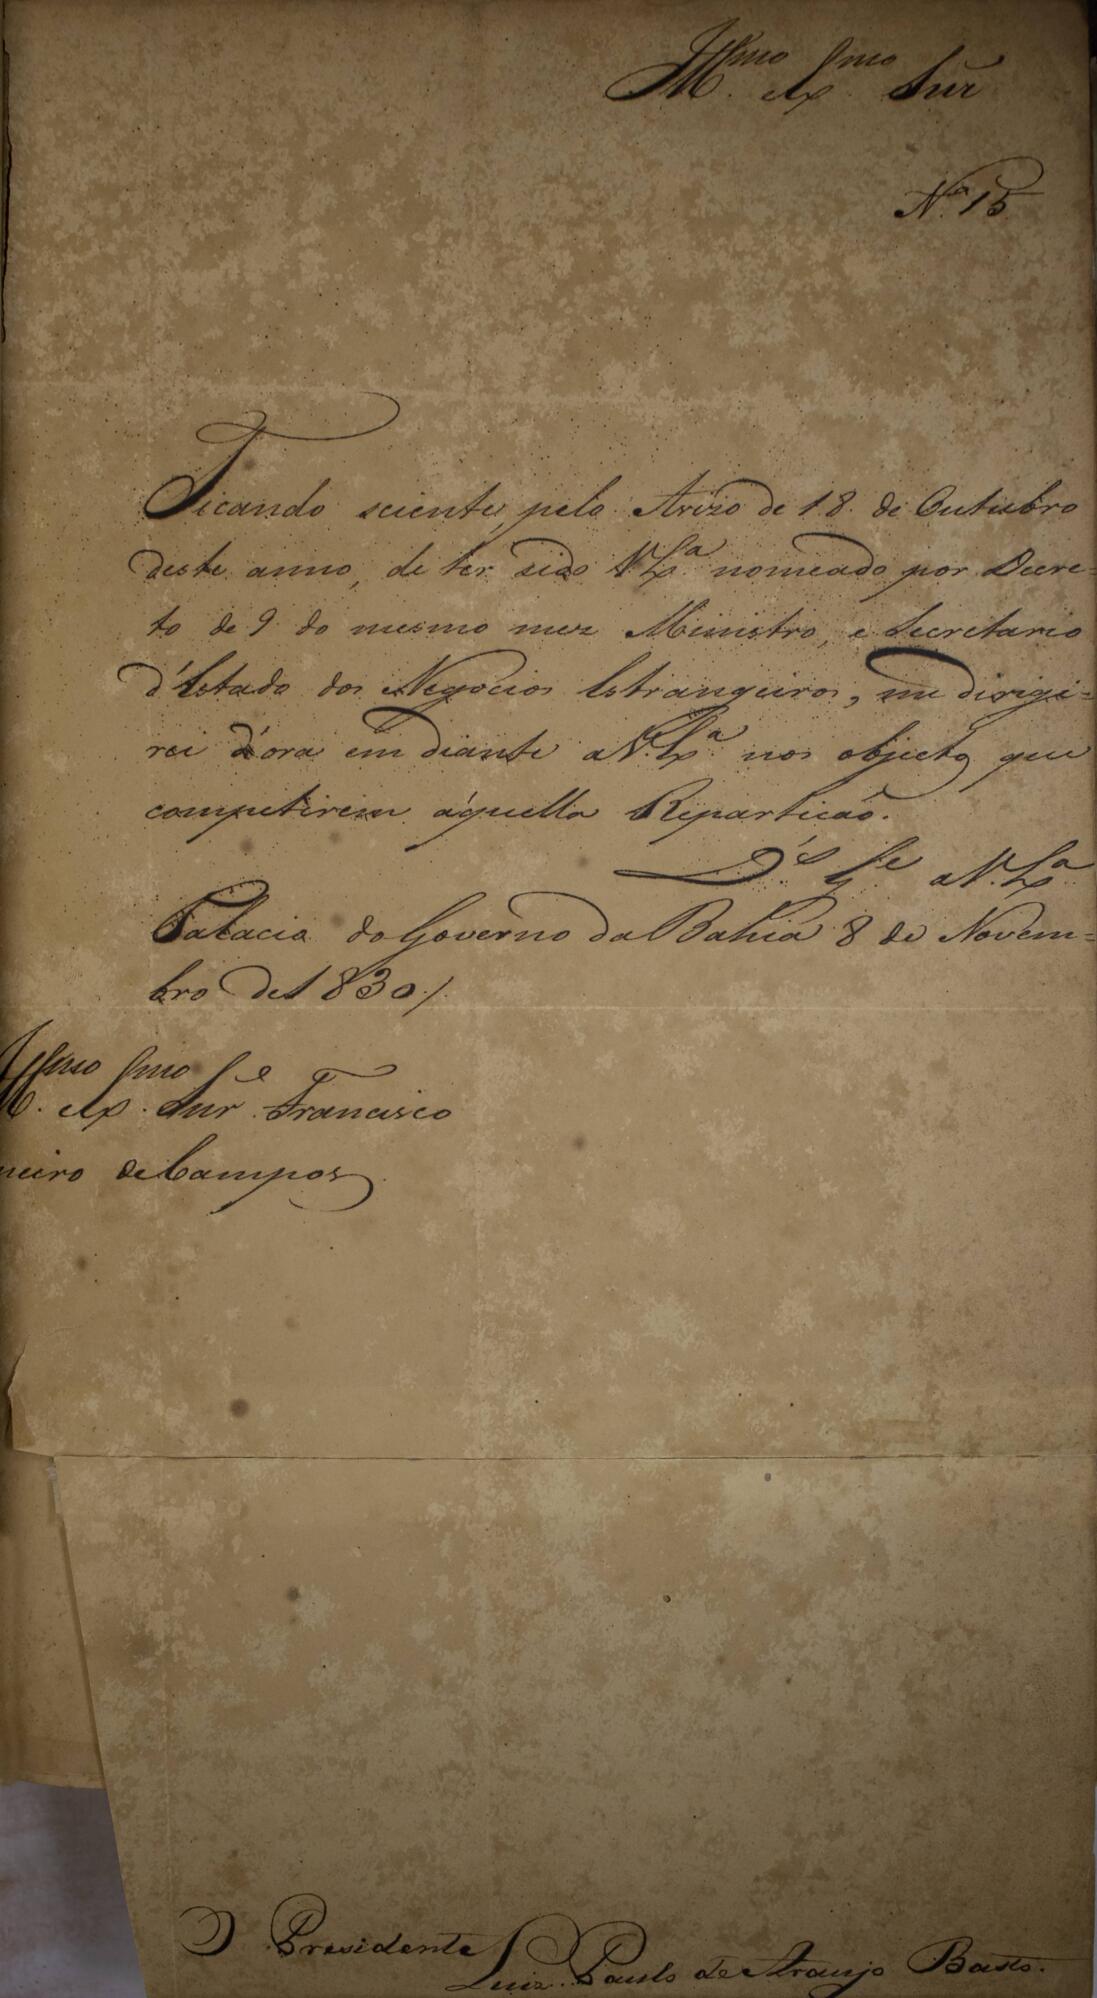 Illmo Exmo Snr
N.º 15
Ficando sciente, pelo Avizo de 18 de Outubro
deste anno, de ter sido V. Exª nomeado por Decre=
to de 9 do mesmo mez Ministro, e Secretario
d'Estado dos Negocios Estrangeiros, me dirigi=
rei d'ora em diante a V. Exª nos objectos que
competirem áquella Repartição.
D.s G.e a V. Exª
Palacio do Governo da Bahia 8 de Novem=
bro de 1830./.
Illmo Exmo Snr Francisco
neiro de Campos
O Presidente
Luiz Paulo de Araujo Basto.